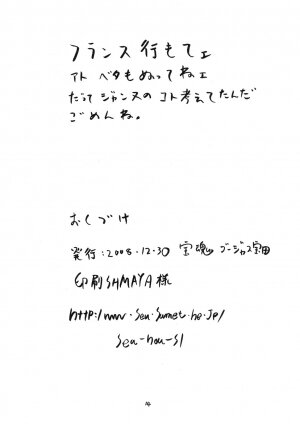 フランス行もてェ
アト ベタもぬってねェ
だって ジャンヌの コト考えてたんだ
ごめんね。
おくづけ
発行:2008.12.30 宝魂 ゴージャス宝田
印刷 SHIMAYA様
sen-nou-s1
14